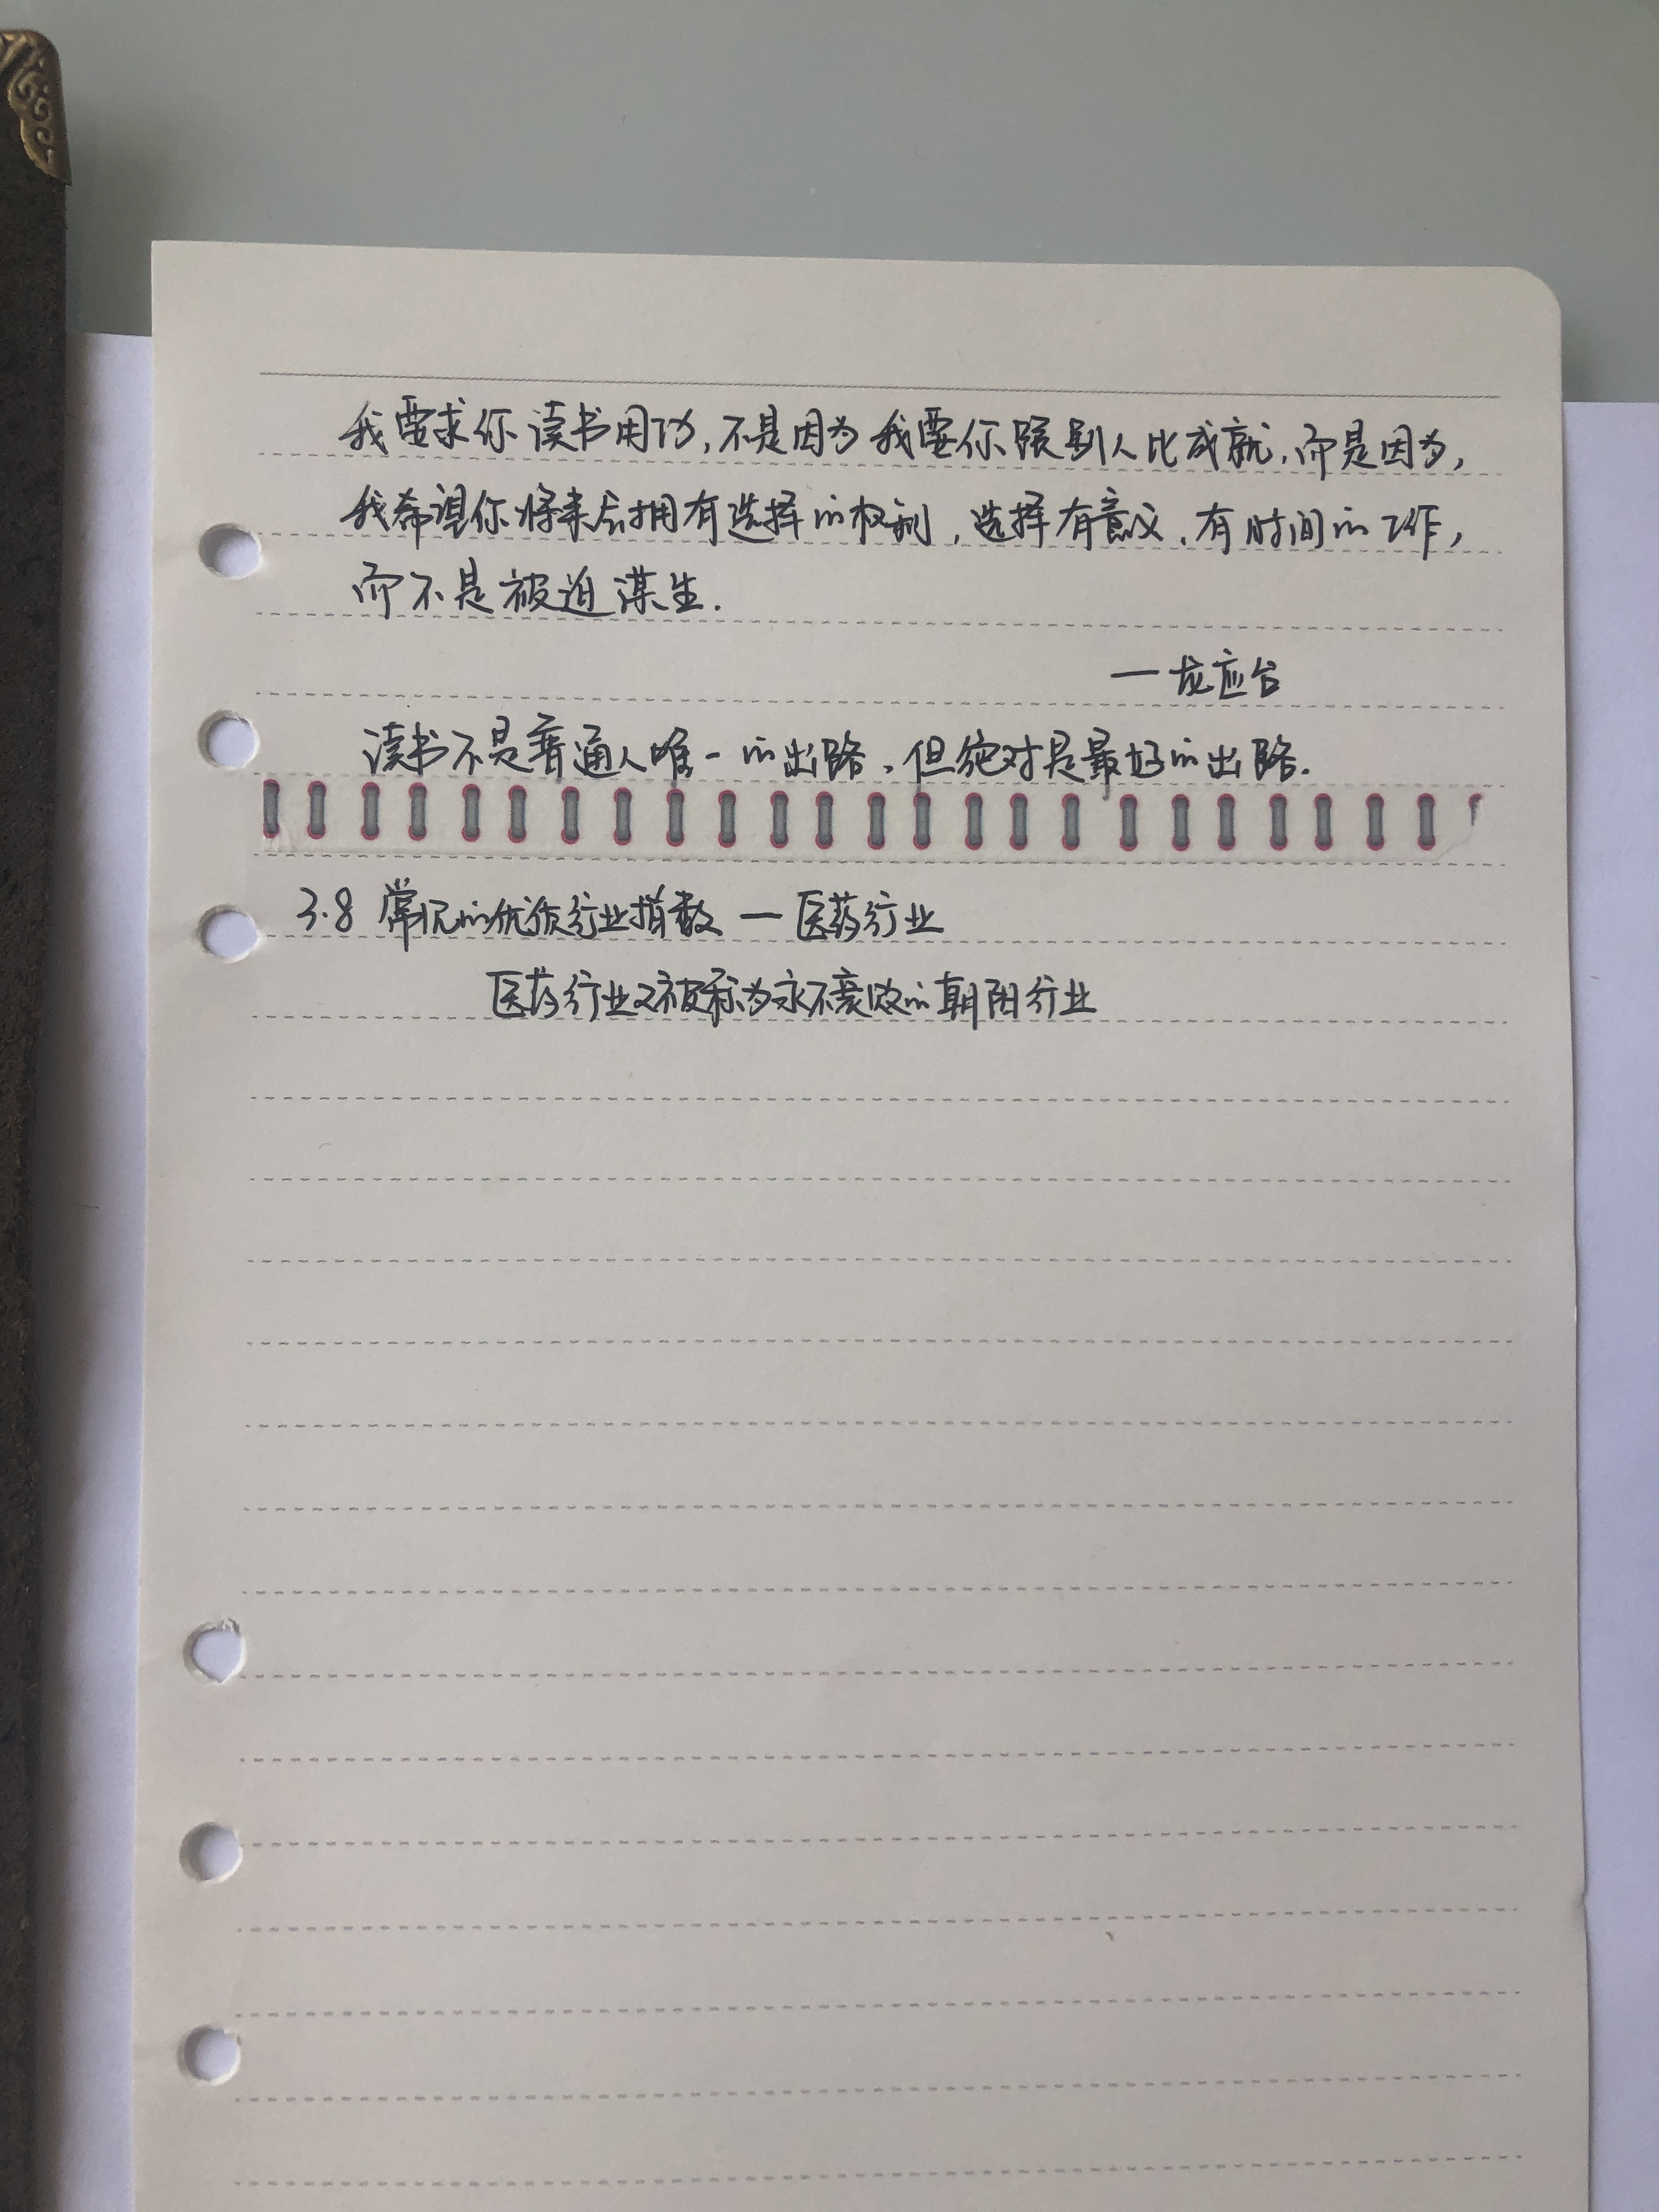 我要求你读书用功,不是因为我要你跟别人比成就,而是因为,
我希望你将来后拥有选择的权利,选择有意义、有时间的工作,
而不是被迫谋生.
—龙应台
读书不是普通人唯一的出路,但绝对是最好的出路.
3.8 常见的优质行业指数 — 医药行业
医药行业又被称为永不衰败的朝阳行业